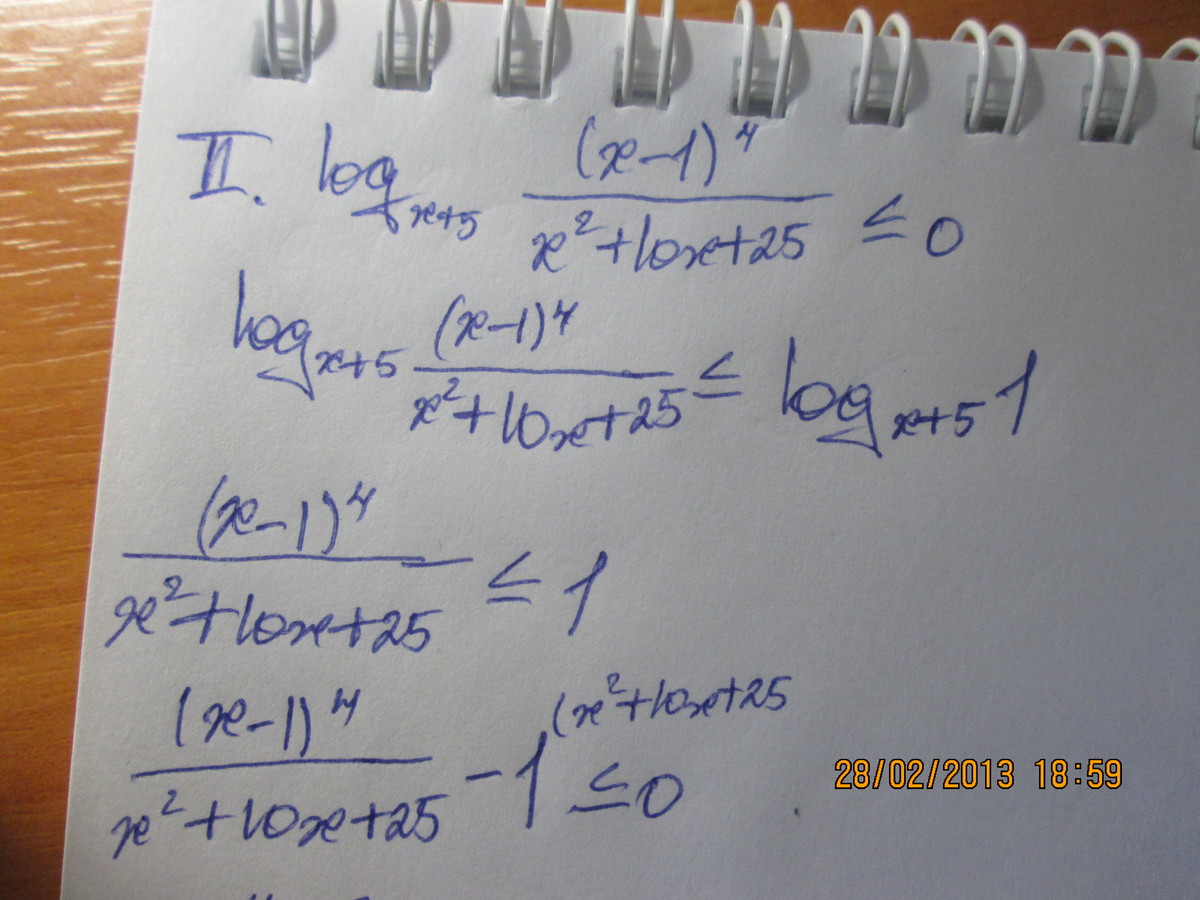 II. log_{x+5} (x-1)^4 / (x^2+10x+25) ≤ 0
log_{x+5} (x-1)^4 / (x^2+10x+25) ≤ log_{x+5} 1
(x-1)^4 / (x^2+10x+25) ≤ 1
(x-1)^4 / (x^2+10x+25) - 1 (x^2+10x+25 ≤ 0
28/02/2013 18:59